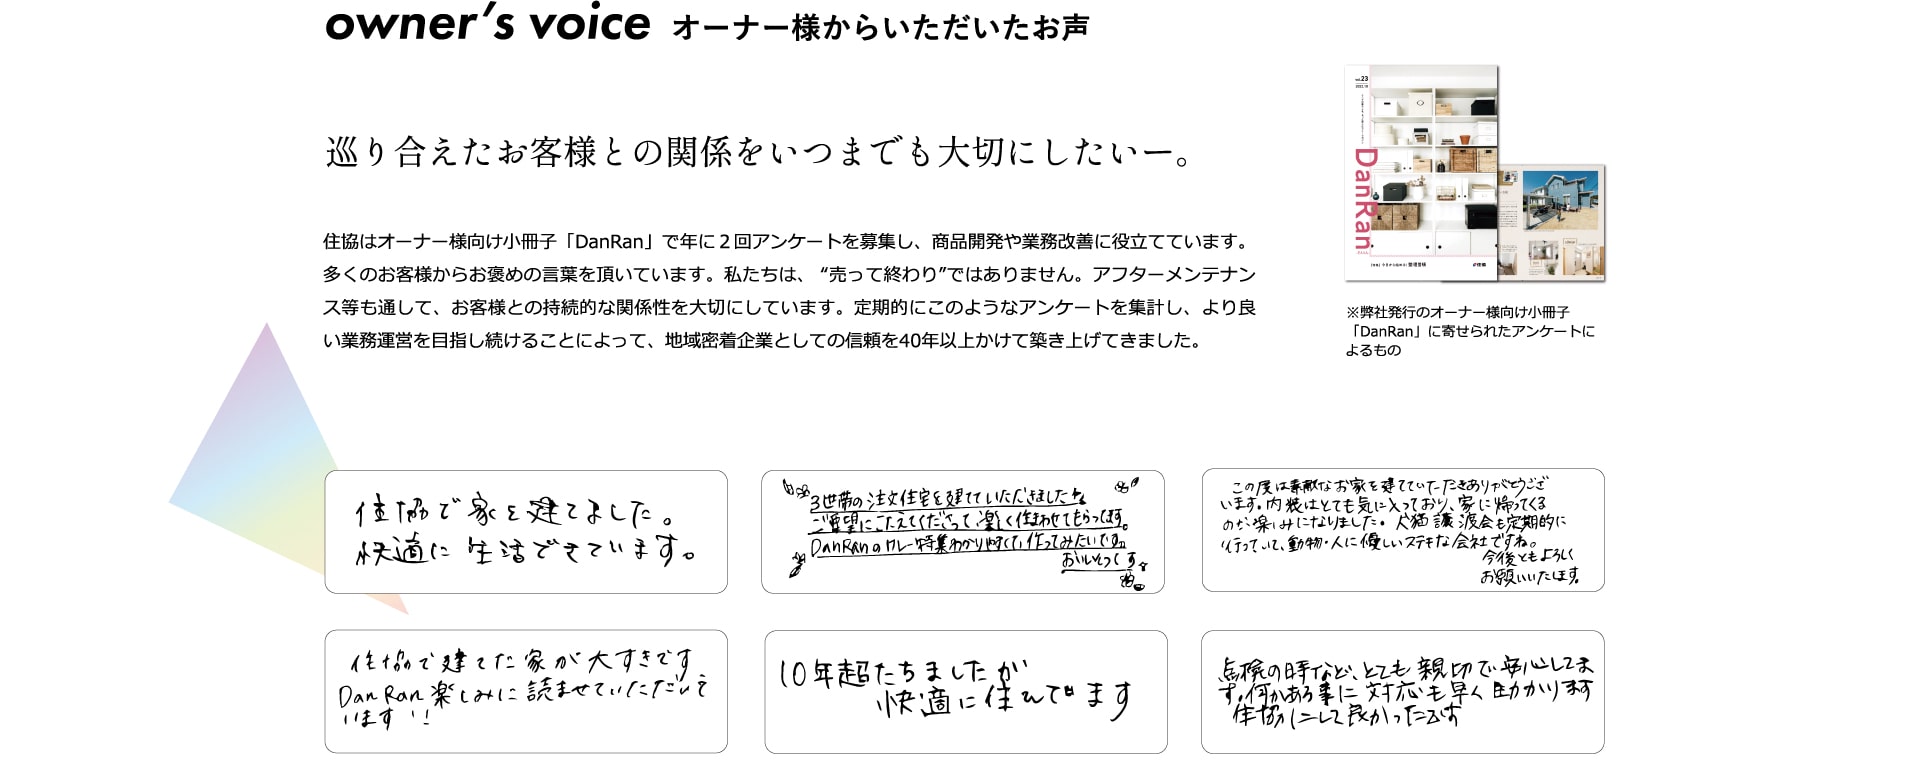 owner's voice オーナー様からいただいたお声
巡り合えたお客様との関係をいつまでも大切にしたいー。
住協はオーナー様向け小冊子「DanRan」で年に２回アンケートを募集し、商品開発や業務改善に役立てています。
多くのお客様からお褒めの言葉を頂いています。私たちは、“売って終わり”ではありません。アフターメンテナン
ス等も通して、お客様との持続的な関係性を大切にしています。定期的にこのようなアンケートを集計し、より良
い業務運営を目指し続けることによって、地域密着企業としての信頼を40年以上かけて築き上げてきました。
vol.23
DanRan
※弊社発行のオーナー様向け小冊子
「DanRan」に寄せられたアンケートに
よるもの
住協で家を建てました。
快適に生活できています。
3世帯の注文住宅を建てていただきましたね
ご要望にこたえてくださって、楽しく住まわせてもらってます。
DanRanのカレー特集わかりやすくて、作ってみたいです。
この度は素敵なお家を建てていただきありがとうござ
います。内装はとても気に入っており、家に帰ってくる
のが楽しみになりました。犬猫譲渡会も定期的に
行っていて、動物・人に優しいステキな会社ですね。
今後ともよろしく
お願いいたします。
住協で建てた家が大すきです
DanRan楽しみに読ませていただいて
います!!
10年超たちましたが
快適に住んでます
点検の時など、とても親切で安心してま
す。何かある事に対応も早く助かります
住協にして良かったです